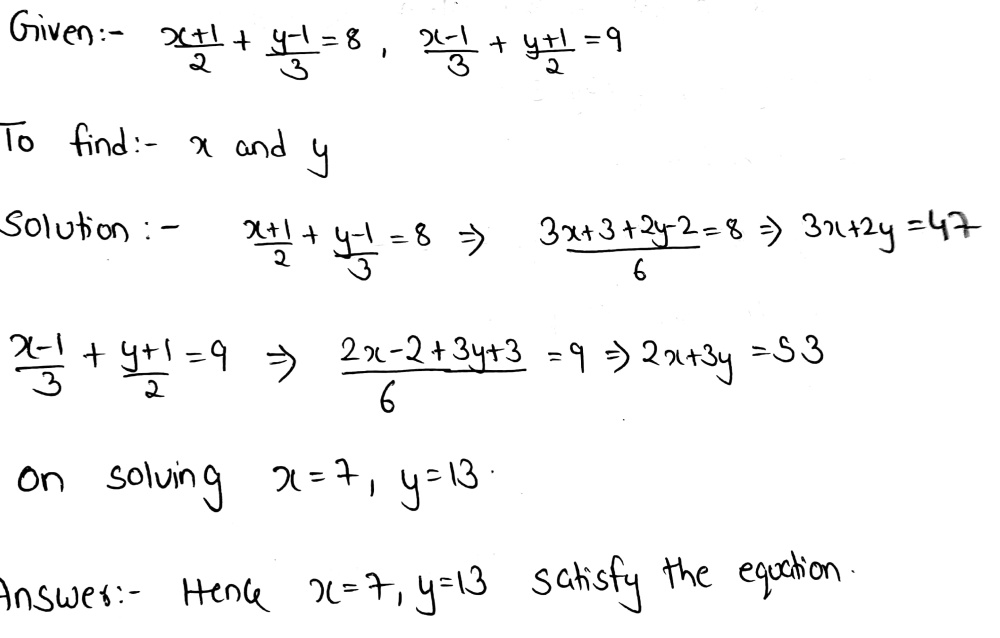 Given:- (x+1)/2 + (y-1)/3 = 8 , (x-1)/3 + (y+1)/2 = 9
To find:- x and y
Solution :- (x+1)/2 + (y-1)/3 = 8 ⇒ (3x+3+2y-2)/6 = 8 ⇒ 3x+2y = 47
(x-1)/3 + (y+1)/2 = 9 ⇒ (2x-2+3y+3)/6 = 9 ⇒ 2x+3y = 53
on solving x=7, y=13.
Answer:- Hence x=7, y=13 satisfy the equation.